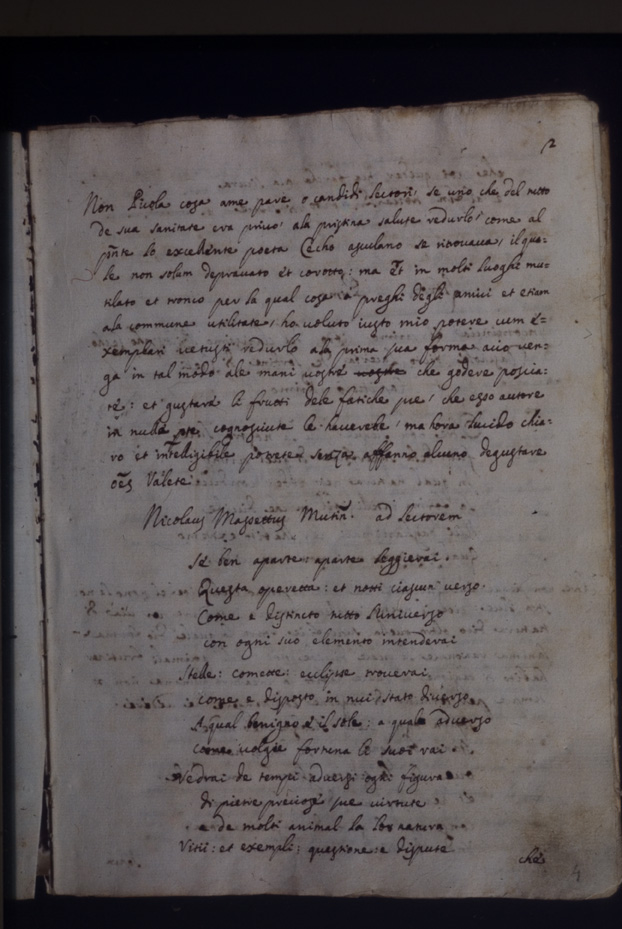 2
Non Picola cosa ame pare o candidi Lectori, se uno che del tutto
de sua sanitate era privo, ala pristina salute redurlo, come al
pñte lo excellente poeta Cecho asculano se ritrovava, il qua=
le non solum depravato et corotto: ma Et in molti luoghi mu=
tilato et tronco per la qual cosa a preghi degli amici et etiam
ala commune utilitate, ho voluto iusto mio potere cum e=
xemplari vetusti redurlo ala prima sua forma acio ven=
ga in tal modo ale mani vostre che godere possia=
te: et gustare li frutti dele fatiche sue, che esso autore
in nulla pte cognosciute le haverebe, ma hora lucido chia=
ro et intelligibile potrete senza affanno alcuno degustare
Valete
Nicolaus Massettus Mutiñ. ad Lectorem
Se ben aparte: aparte leggierai
Questa operetta: et notti ciascun verso
Come e distincto tutto l'universo
con ogni suo elemento intenderai
Stelle: comette: ecclipse trovarai
come e disposto in nui stato diverso
A qual benigno è il sole: a quale adverso
come volgie fortuna li suoi rai
Vedrai de tempi adversi ogni figura
di pietre preciose sue virtute
e de molti animal la lor natura
Vitii: et exempli: questione: e dispute
che